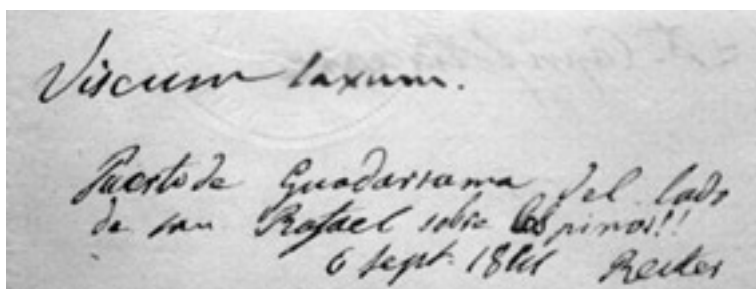 Viscum laxum.
Puerto de Guadarrama del lado
de san Rafael sobre los pinos!!
6 sept.